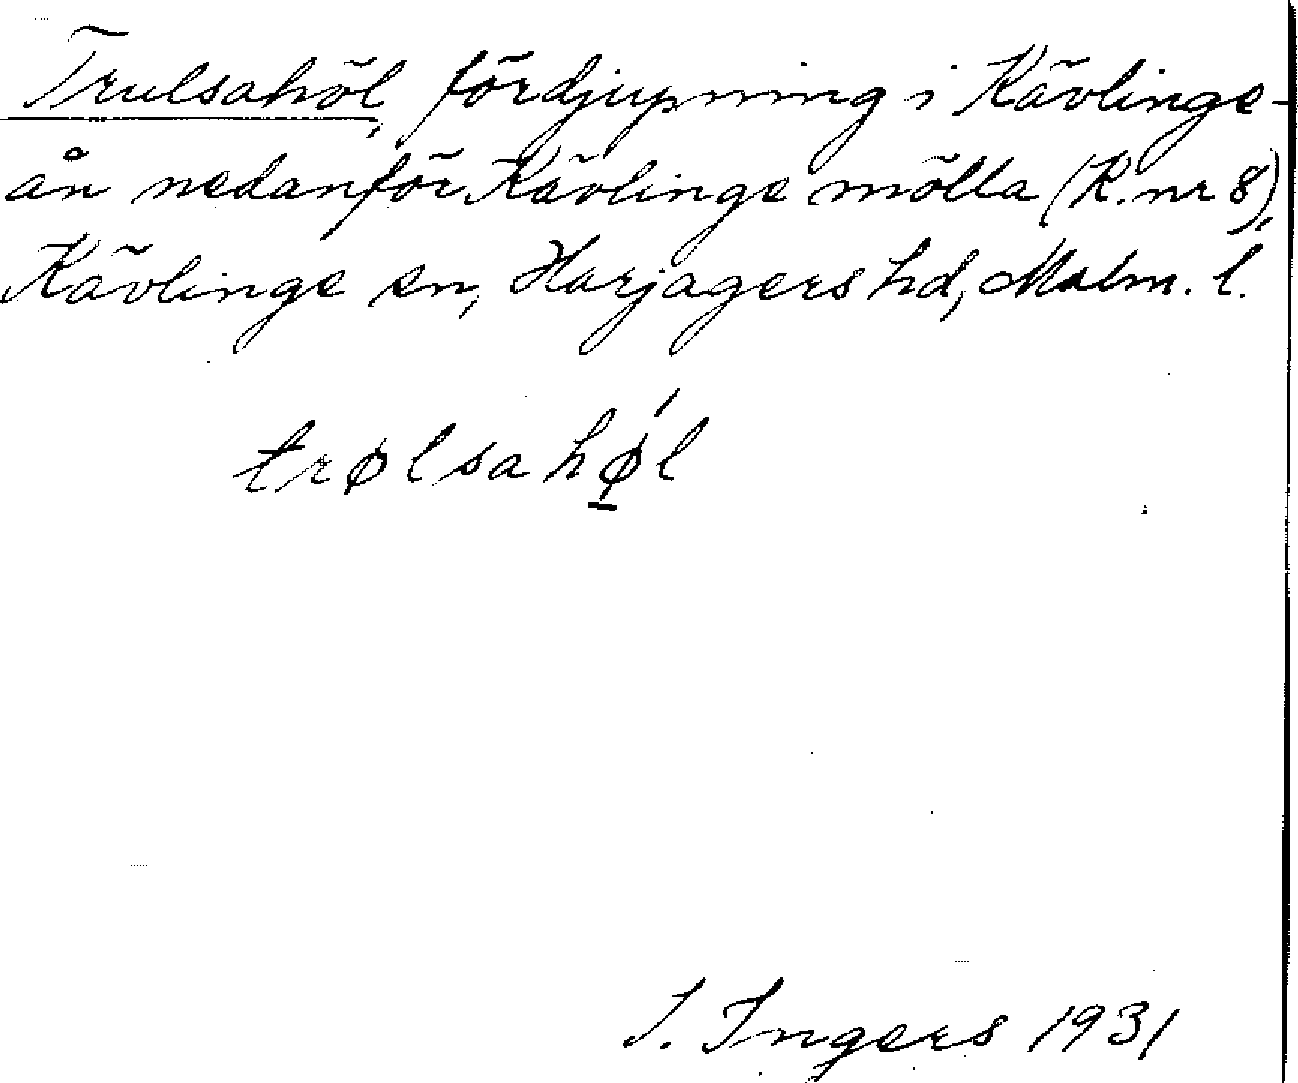 Trulsahöl, fördjupning i Kävlinge-
ån nedanför Kävlinge mölla (K. nr 8),
Kävlinge sn, Harjagers hd, Malm. l.
trølsahǿ̠l
I. Ingers 1931